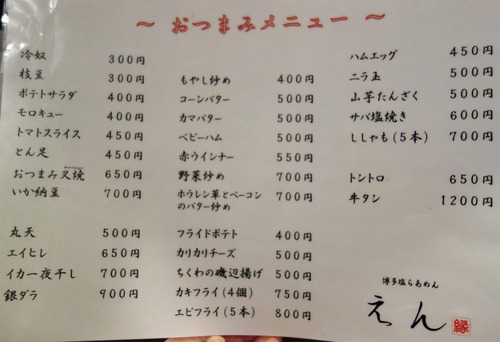 ～ おつまみメニュー ～
冷奴 300円
枝豆 300円
ポテトサラダ 400円
モロキュー 400円
トマトスライス 450円
とん足 450円
おつまみ叉焼 650円
いか納豆 700円
丸天 500円
エイヒレ 650円
イカ一夜干し 700円
銀ダラ 900円
もやし炒め 400円
コーンバター 500円
カマバター 500円
ベビーハム 500円
赤ウインナー 550円
野菜炒め 700円
ホウレン草とベーコン
のバター炒め 700円
フライドポテト 400円
カリカリチーズ 500円
ちくわの磯辺揚げ 500円
カキフライ(4個) 750円
エビフライ(5本) 800円
ハムエッグ 450円
ニラ玉 500円
山芋たんざく 500円
サバ塩焼き 600円
ししゃも(5本) 700円
トントロ 650円
牛タン 1200円
博多塩らあめん
えん
縁